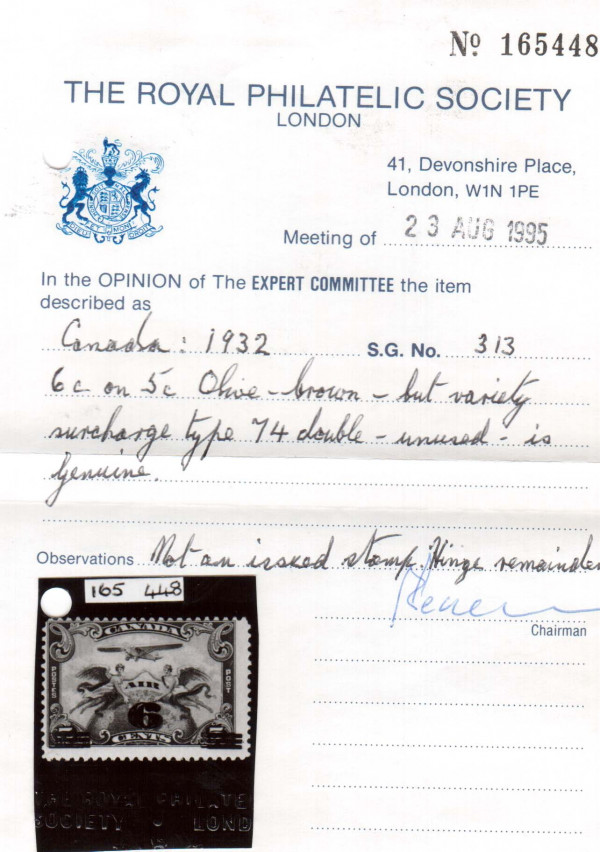 No 165448
THE ROYAL PHILATELIC SOCIETY
LONDON
41, Devonshire Place,
London, W1N 1PE
Meeting of 23 AUG 1995
In the OPINION of The EXPERT COMMITTEE the item
described as
Canada : 1932 S.G. No. 313
6c on 5c Olive-brown - but variety
surcharge type 74 double - unused - is
genuine.
Observations Not an issued stamp. Hinge remainder
Chairman
165 448
CANADA
POSTES POST
AIR
6
CENTS
THE ROYAL PHILATE
SOCIETY LOND